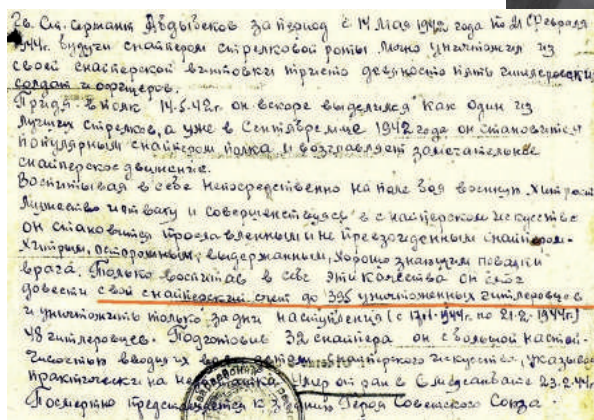 Гв. Ст. Сержант Абдыбеков за период с 14 мая 1942 года по 21 Февраля
1944г. будучи снайпером стрелковой роты лично уничтожил из
своей снайперской винтовки триста девяносто пять гитлеровских
солдат и офицеров.
Придя в полк 14.5.42г. он вскоре выделился как один из
лучших стрелков, а уже в Сентябре м-це 1942 года он становится
популярным снайпером полка и возглавляет замечательное
снайперское движение.
Воспитывая в себе непосредственно на поле боя военную хитрость
мужество и отвагу и совершенствуясь в снайперском искусстве
он становится прославленным и не превзойденным снайпером-
хитрым, осторожным, выдержанным, хорошо знающим повадки
врага. Только воспитав в себе эти качества он смог
довести свой снайперский счет до 395 уничтоженных гитлеровцев
и уничтожить только за дни наступления (с по 21-2-1944г.)
48 гитлеровцев. Подготовив 32 снайпера он с большой настой-
чивостью вводил их во снайперского искусства, указывая
практически на Умер от ран в Медсанбате 23.2.44г.
Посмертно представляется к Героя Советского Союза.